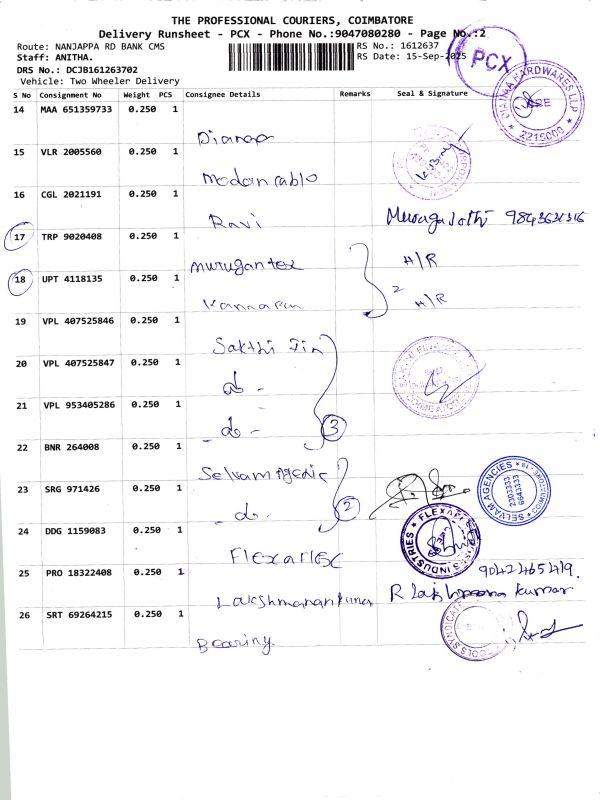 THE PROFESSIONAL COURIERS, COIMBATORE
Delivery Runsheet - PCX - Phone No.:9047080280 - Page No.:2
Route: NANJAPPA RD BANK CMS RS No.: 1612637
Staff: ANITHA. RS Date: 15-Sep-2025
DRS No.: DCJB161263702
Vehicle: Two Wheeler Delivery
PCX
S No Consignment No Weight PCS Consignee Details Remarks Seal & Signature
14 MAA 651359733 0.250 1
HARDWARES LLP
2215000
15 VLR 2005560 0.250 1
16 CGL 2021191 0.250 1
Ravi
17 TRP 9020408 0.250 1
murugan tex H/R
18 UPT 4118135 0.250 1
2 H/R
19 VPL 407525846 0.250 1
Sakthi Fin
20 VPL 407525847 0.250 1
do -
21 VPL 953405286 0.250 1
- do - 3
22 BNR 264008 0.250 1
Selvam Agencie
SELVAM AGENCIES
23 SRG 971426 0.250 1
- do - 2
24 DDG 1159083 0.250 1
25 PRO 18322408 0.250 1
26 SRT 69264215 0.250 1
Bearing